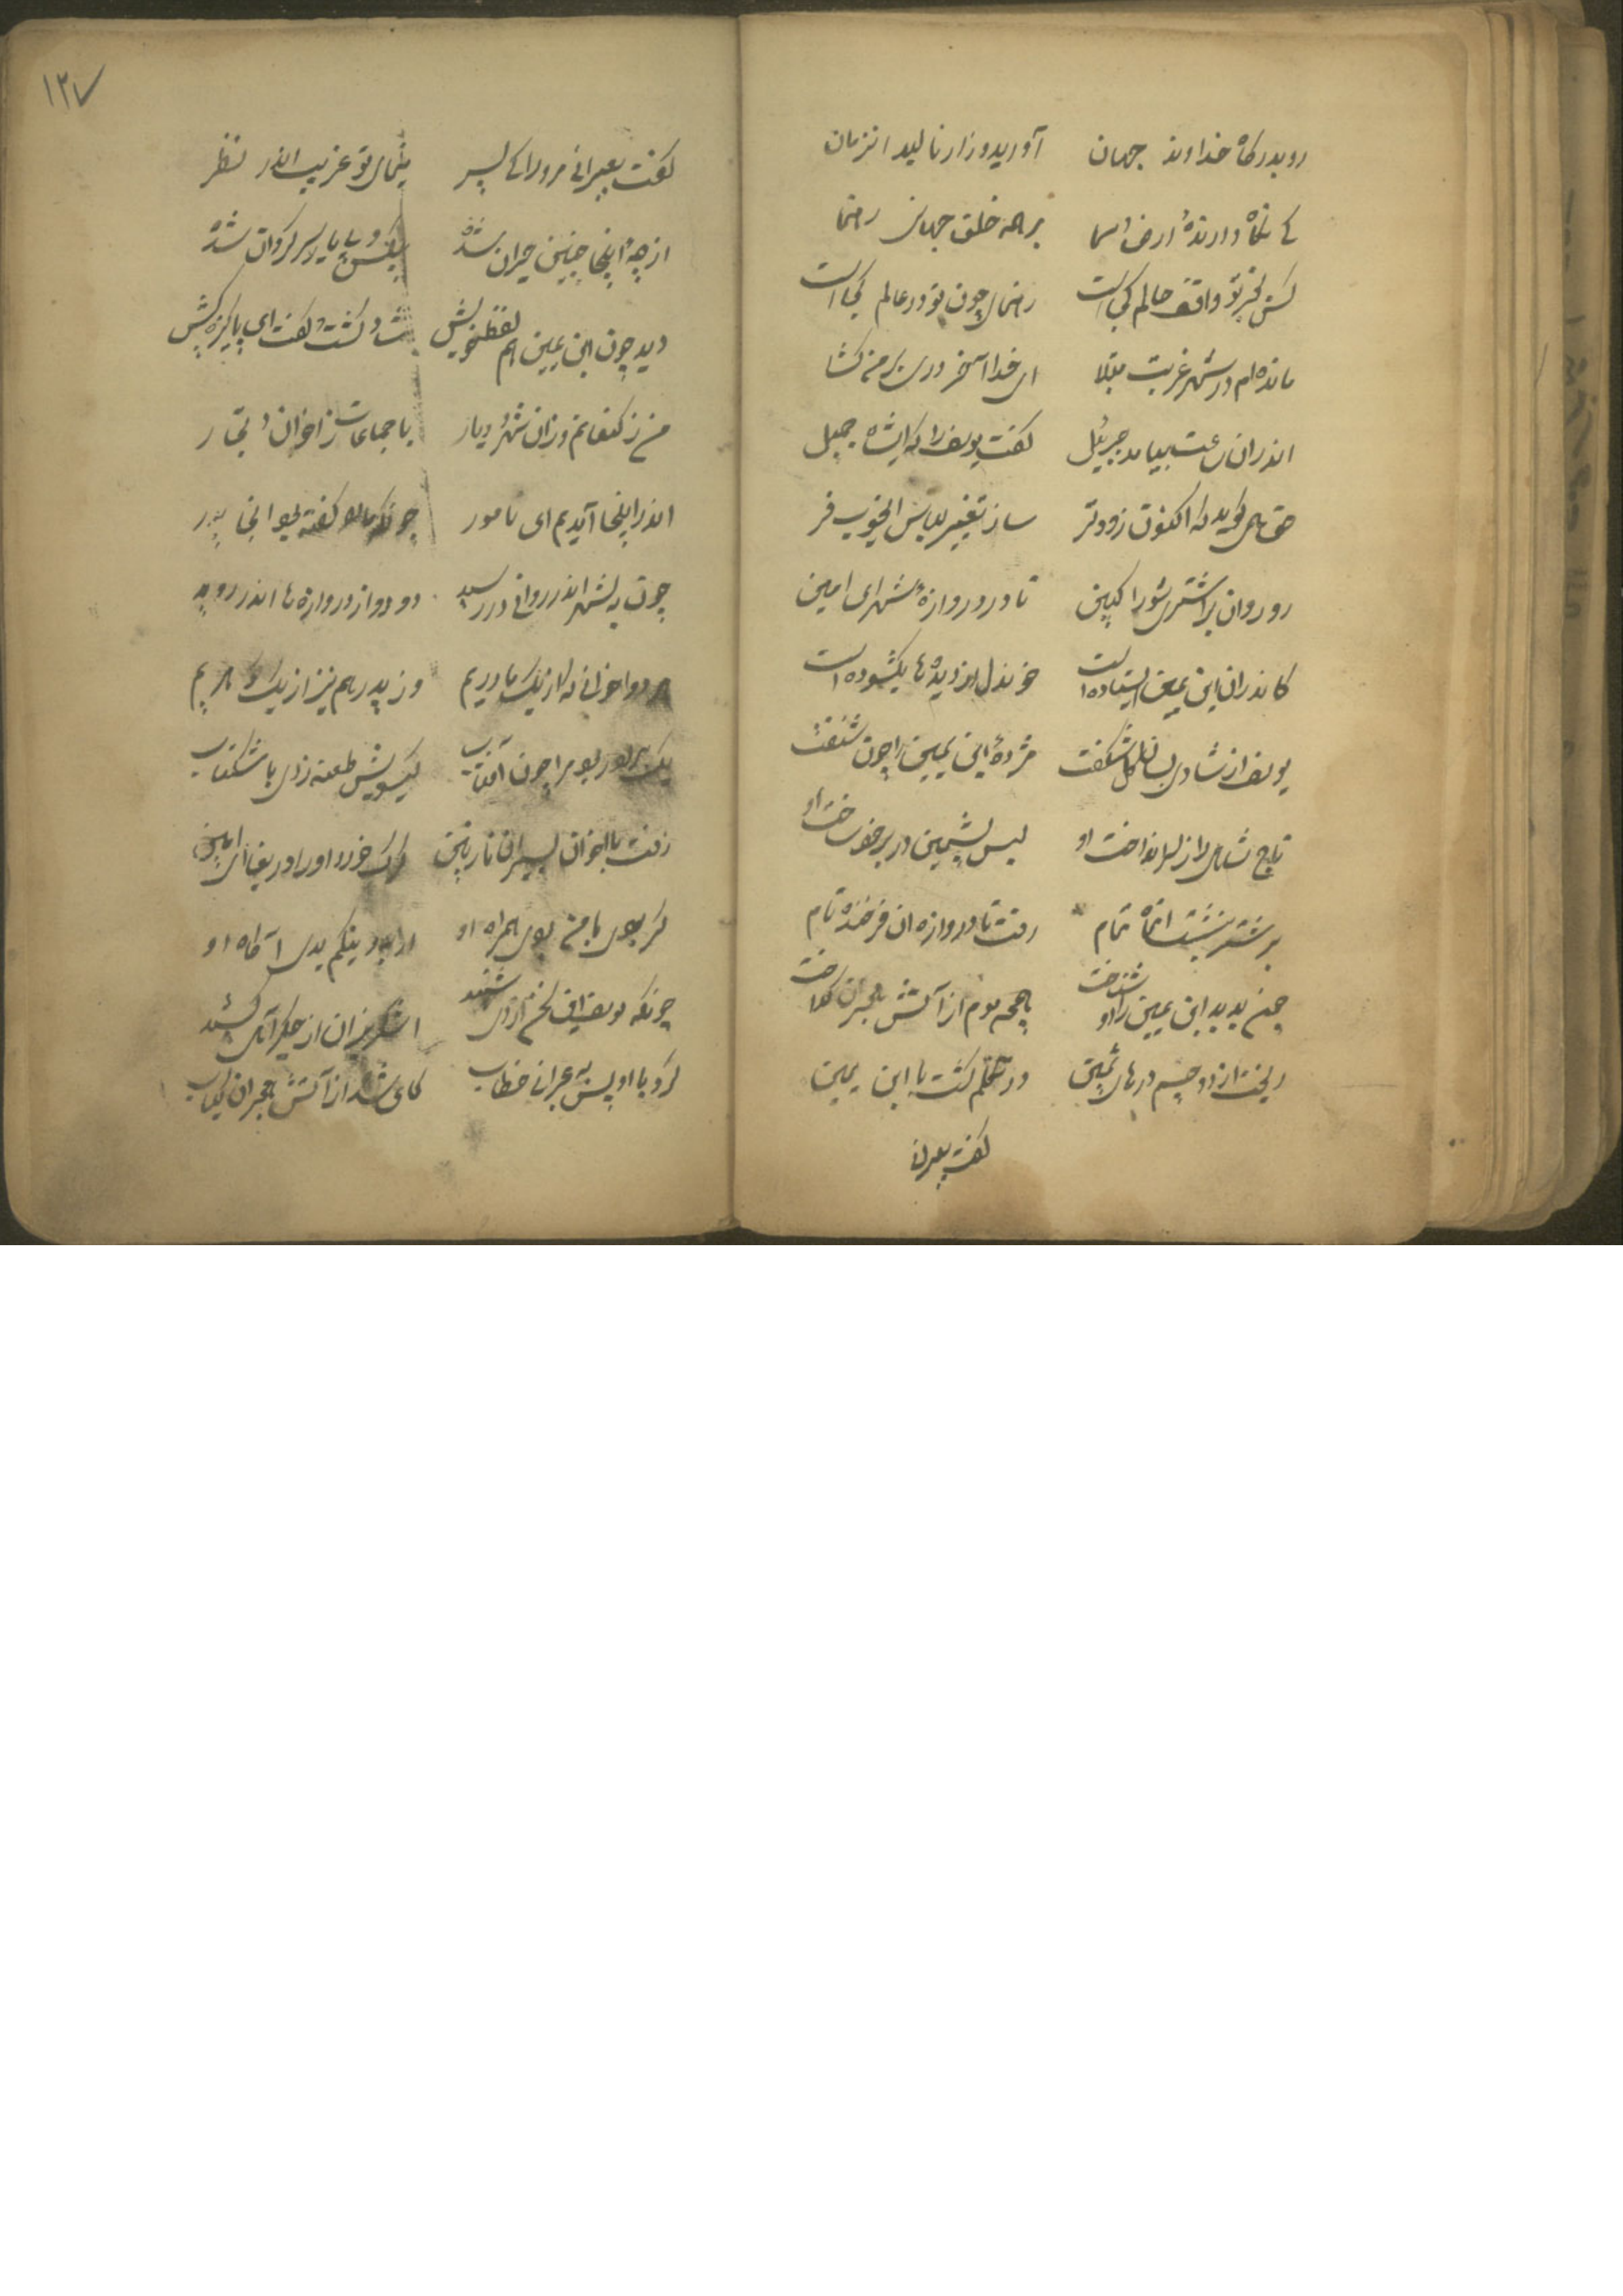 رو بدرگاه خداوند جهان آورید و زار نالید انزمان
کے نگاه دارندهٔ ارض و سما بر همه خلق جهان رهنما
کس بجز تو واقف حالم کجاست رهنمای چون تو در عالم کجاست
مانده ام در شهر غربت مبتلا ای خدا آخر دری بر من کشا
اندران ساعت بیامد جبرئیل گفت یوسف را که ایشاه جمیل
حق همی گوید که اکنون زودتر ساز تغییر لباس ایخوب فر
رو روان بر اشتری شو راکبین تا در دروازهٔ شهر ای امین
کاندران ابن یمین ایستاده است خوندل از دیده ها بگشوده است
یوسف از شادی بسان گل شکفت مژدهٔ ابن یمین را چون شنفت
تاج شاهی را ز سر انداخت او پس پشمین در بر خود ساخت او
بر شتر بنشست انماه تمام رفت تا دروازه ان فرخنده نام
چون بدید ابن یمین را او شناخت همچو موم از آتش هجران گداخت
ریخت از دو چشم درهای ثمین در تکلم گشت با ابن یمین
گفت بعبرانی
۱۲۷
گفت بعبرانی مرورا کے پسر مینمای تو غریب اندر نظر
از چه اینجا چنین حیران شدهٔ بیکس و بی یار و سرگردان شدهٔ
دید چون ابن یمین هم لفظ خویش شاد گشت و گفت ای پاکیزه کیش
من ز کنعانم وزان شهر و دیار با جماعات ز اخوان و تجار
اندر اینجا آمدیم ای نامور چونکه ما را گفته بود انجا پدر
چون به شهر اندر روانی در رسید دو دو از دروازه ها اندر روید
هر دو اخوانی که از یک مادریم وز پدر هم نیز از یک گوهریم
یک برادر بود مرا چون آفتاب گیسویش طعنه زدی با مشکناب
رفت با اخوان بسیران نازنین گرگ خورد او را دریغا ای امین
گر بدی با من بدی همراه او
چونکه یوسف این سخن از وی شنید اشکریزان از جگر آهی کشید
کرد با او پس به عبرانی خطاب کای شده از آتش هجران کباب